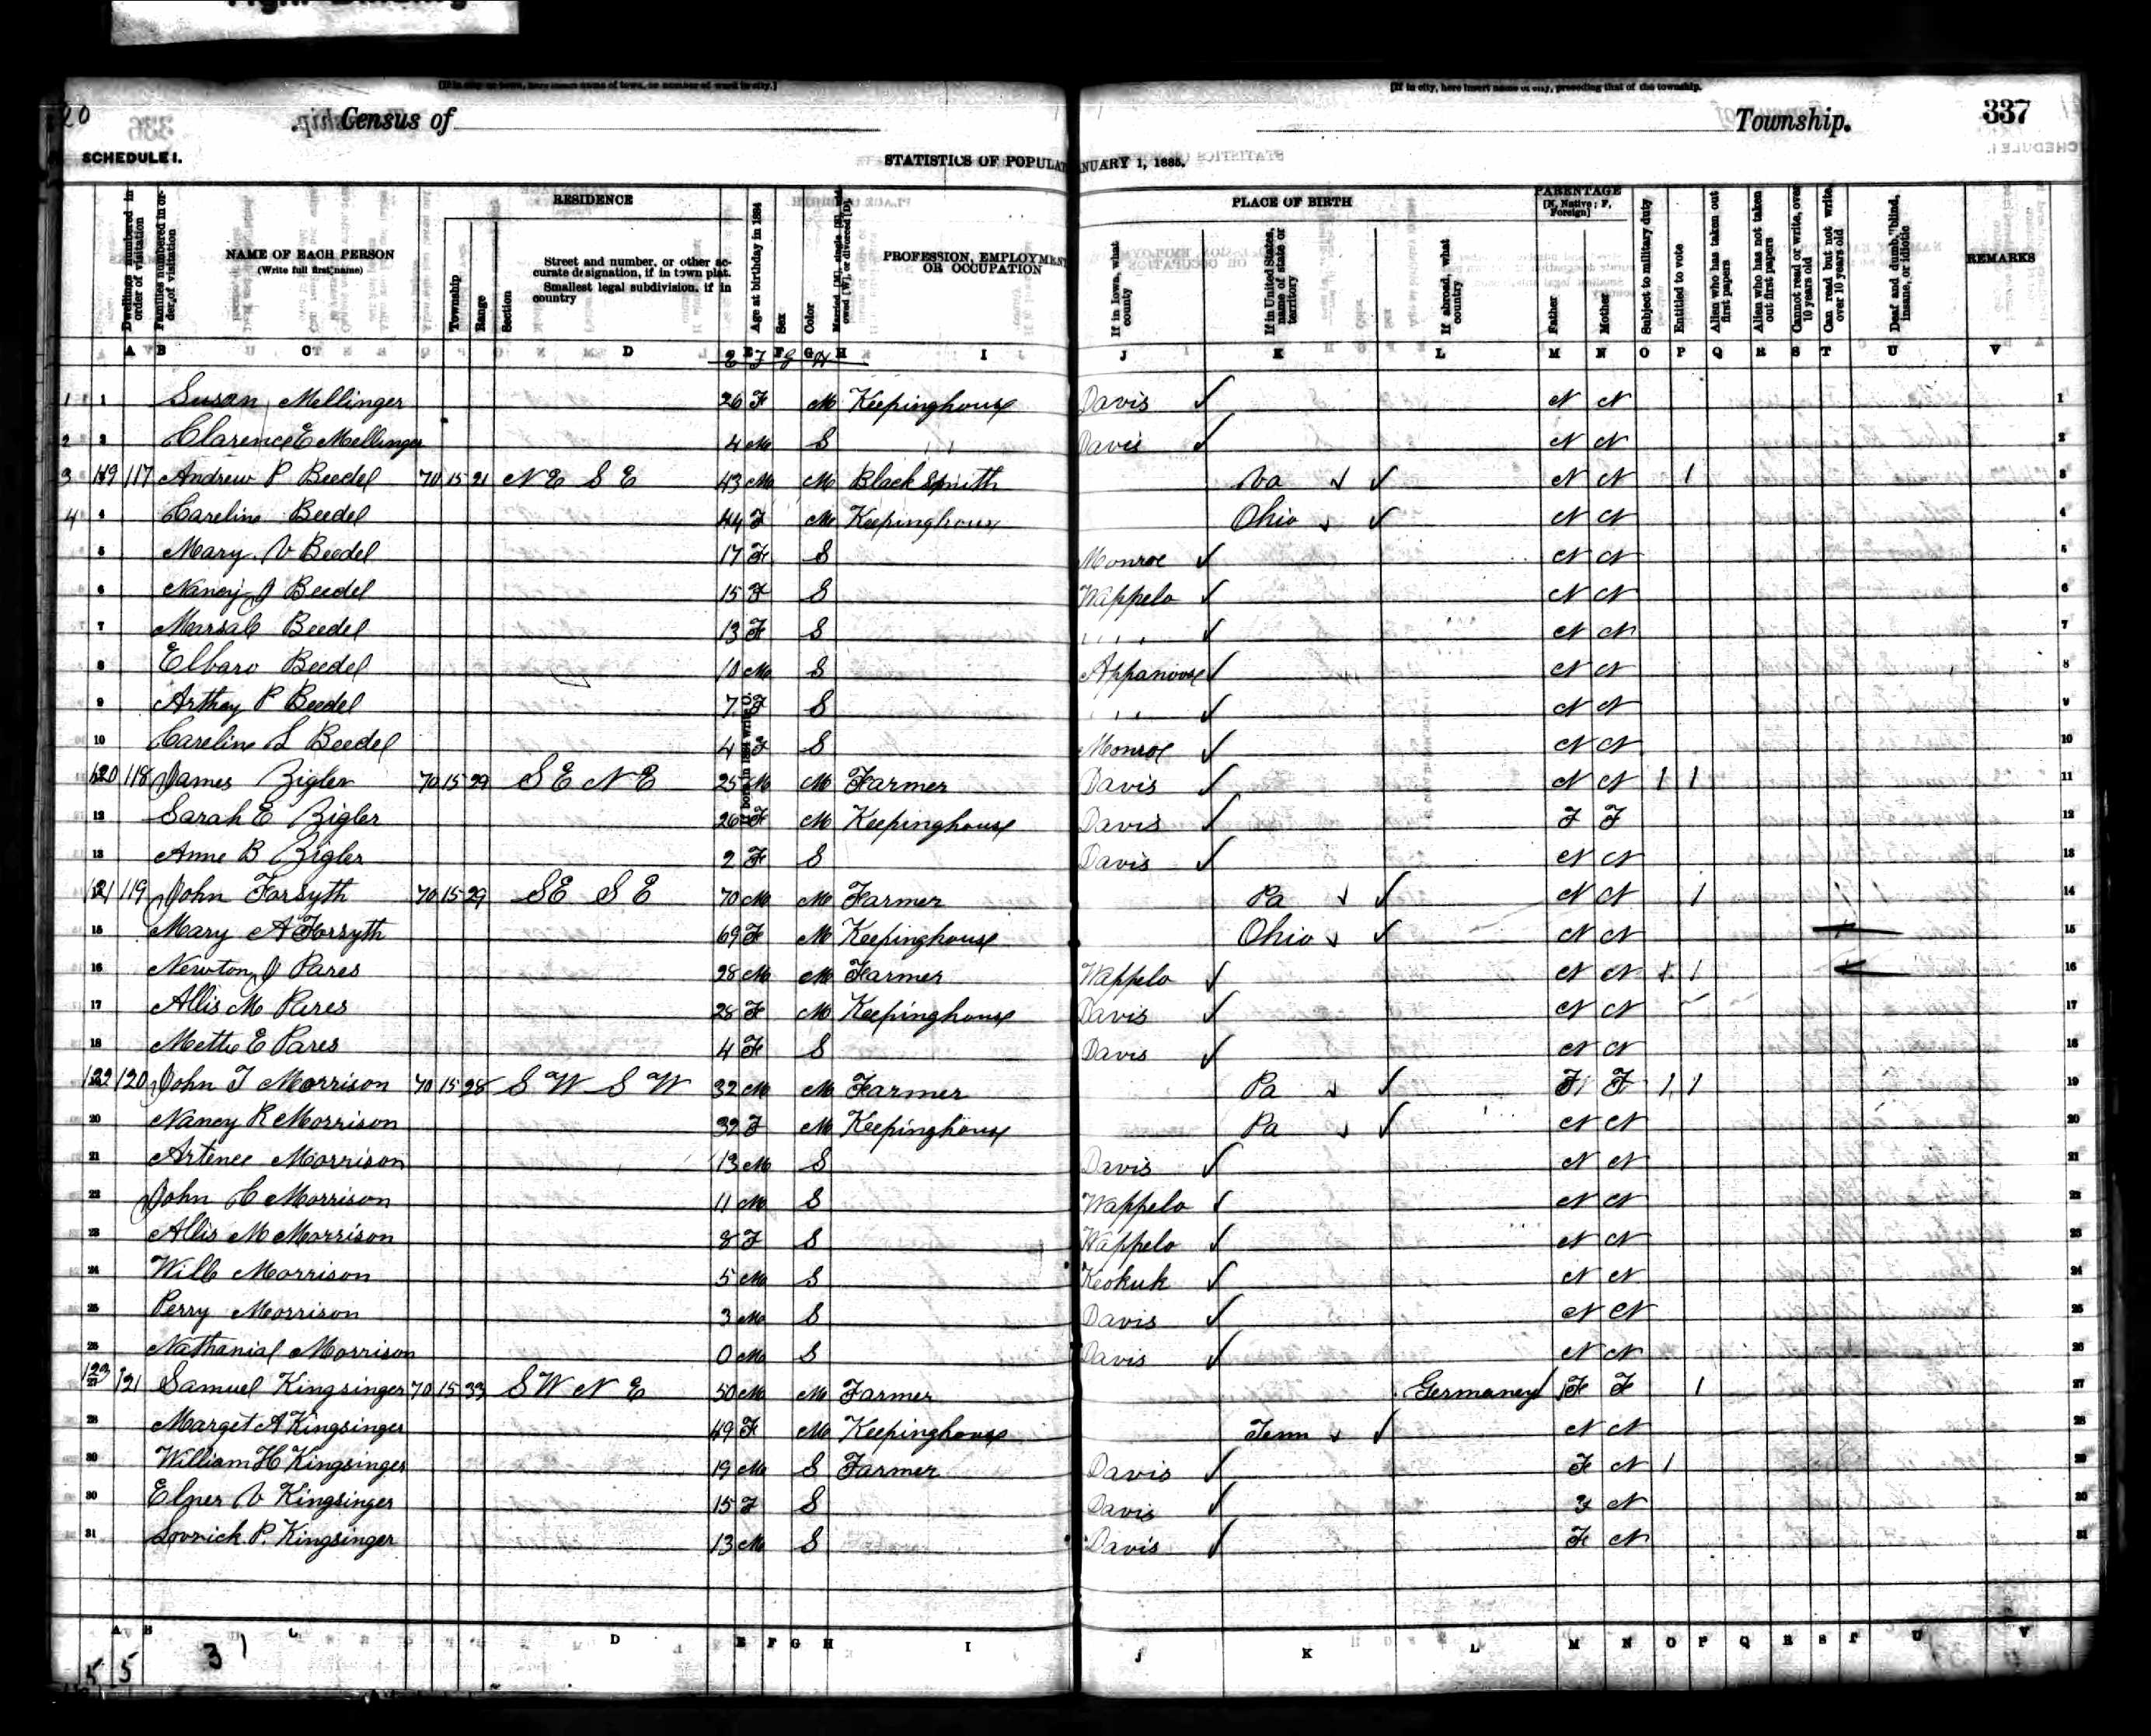 20
[If in city or town, here insert name of town, or number of ward in city.]
[If in city, here insert name of city, preceding that of the township.
Census of
Township.
337
SCHEDULE I.
STATISTICS OF POPULAT
NUARY 1, 1885.
Dwellings numbered in order of visitation
Families numbered in order of visitation
NAME OF EACH PERSON
(Write full first name)
RESIDENCE
Township
Range
Section
Street and number, or other accurate designation, if in town plat. Smallest legal subdivision, if in country
Age at birthday in 1884
If born in 1884 write 0.
Sex
Color
Married, [M], single [S], widowed [W], or divorced [D].
PROFESSION, EMPLOYMENT OR OCCUPATION
PLACE OF BIRTH
If in Iowa, what county
If in United States, name of state or territory
If abroad, what country
PARENTAGE
[N, Native; F, Foreign]
Father
Mother
Subject to military duty
Entitled to vote
Alien who has taken out first papers
Alien who has not taken out first papers
Cannot read or write, over 10 years old
Can read but not write, over 10 years old
Deaf and dumb, blind, insane, or idiotic
REMARKS
A B C D E F G H I J K L M N O P Q R S T U V
1 Susan Mellinger 26 F M Keepinghouse Davis N N 1
2 Clarence E Mellinger 4 M S Davis N N 2
3 119 117 Andrew P Beedel 70 15 21 N E S E 43 M M Black Smith Va N N 1 3
4 Careline Beedel 44 F M Keepinghouse Ohio N N 4
5 Mary V Beedel 17 F S Monroe N N 5
6 Nancy J Beedel 15 F S Wappelo N N 6
7 Beedel 13 F S " " N N 7
8 Elbaro Beedel 10 M S Appanoose N N 8
9 Arthay P Beedel 7 F S " " N N 9
10 Careline L Beedel 4 F S Monroe N N 10
120 118 James Zigler 70 15 29 S E N E 25 M M Farmer Davis N N 1 1 11
12 Sarah E Zigler 26 F M Keepinghouse Davis F F 12
13 Anne B Zigler 2 F S Davis N N 13
121 119 John Forsyth 70 15 29 S E S E 70 M M Farmer Pa N N 1 14
15 Mary A Forsyth 69 F M Keepinghouse Ohio N N 15
16 Newton J Pares 28 M M Farmer Wappelo N N 1 1 16
17 Allis M Pares 28 F M Keepinghouse Davis N N 17
18 Mettie E Pares 4 F S Davis N N 18
122 120 John T Morrison 70 15 28 S W S W 32 M M Farmer Pa F F 1 1 19
20 Nancy R Morrison 32 F M Keepinghouse Pa N N 20
21 Artence Morrison 13 M S Davis N N 21
22 John C Morrison 11 M S Wappelo N N 22
23 Allis M Morrison 8 F S Wappelo N N 23
24 Will Morrison 5 M S Keokuk N N 24
25 Perry Morrison 3 M S Davis N N 25
26 Nathanial Morrison 0 M S Davis N N 26
123 27 121 Samuel Kingsinger 70 15 33 S W N E 50 M M Farmer Germaney F F 1 27
28 Marget A Kingsinger 49 F M Keepinghouse Tenn N N 28
30 William H Kingsinger 19 M S Farmer Davis F N 1 29
30 Elner V Kingsinger 15 F S Davis F N 30
31 Lovrick P. Kingsinger 13 M S Davis F N 31
A B C D E F G H I J K L M N O P Q R S T U V
5 5 31